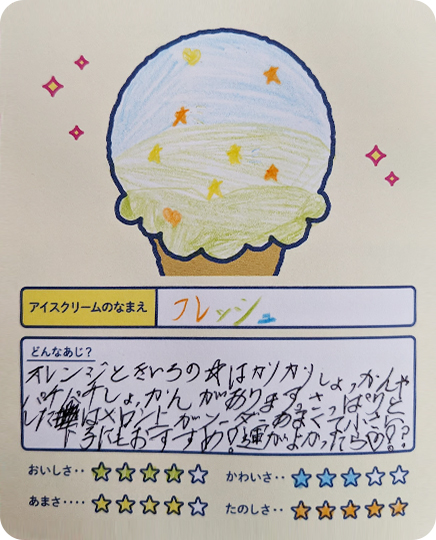 アイスクリームのなまえ フレッシュ
どんなあじ?
オレンジときいろの☆はカリカリしょっかんや
パチパチしょっかんがあります。さっぱりと
した はメロンとがソーダーあまくて小さい
子にもおすすめ!運がよかったら♡!?
おいしさ‥ ★★★★☆ かわいさ‥ ★★★☆☆
あまさ‥‥ ★★★★☆ たのしさ‥ ★★★★★